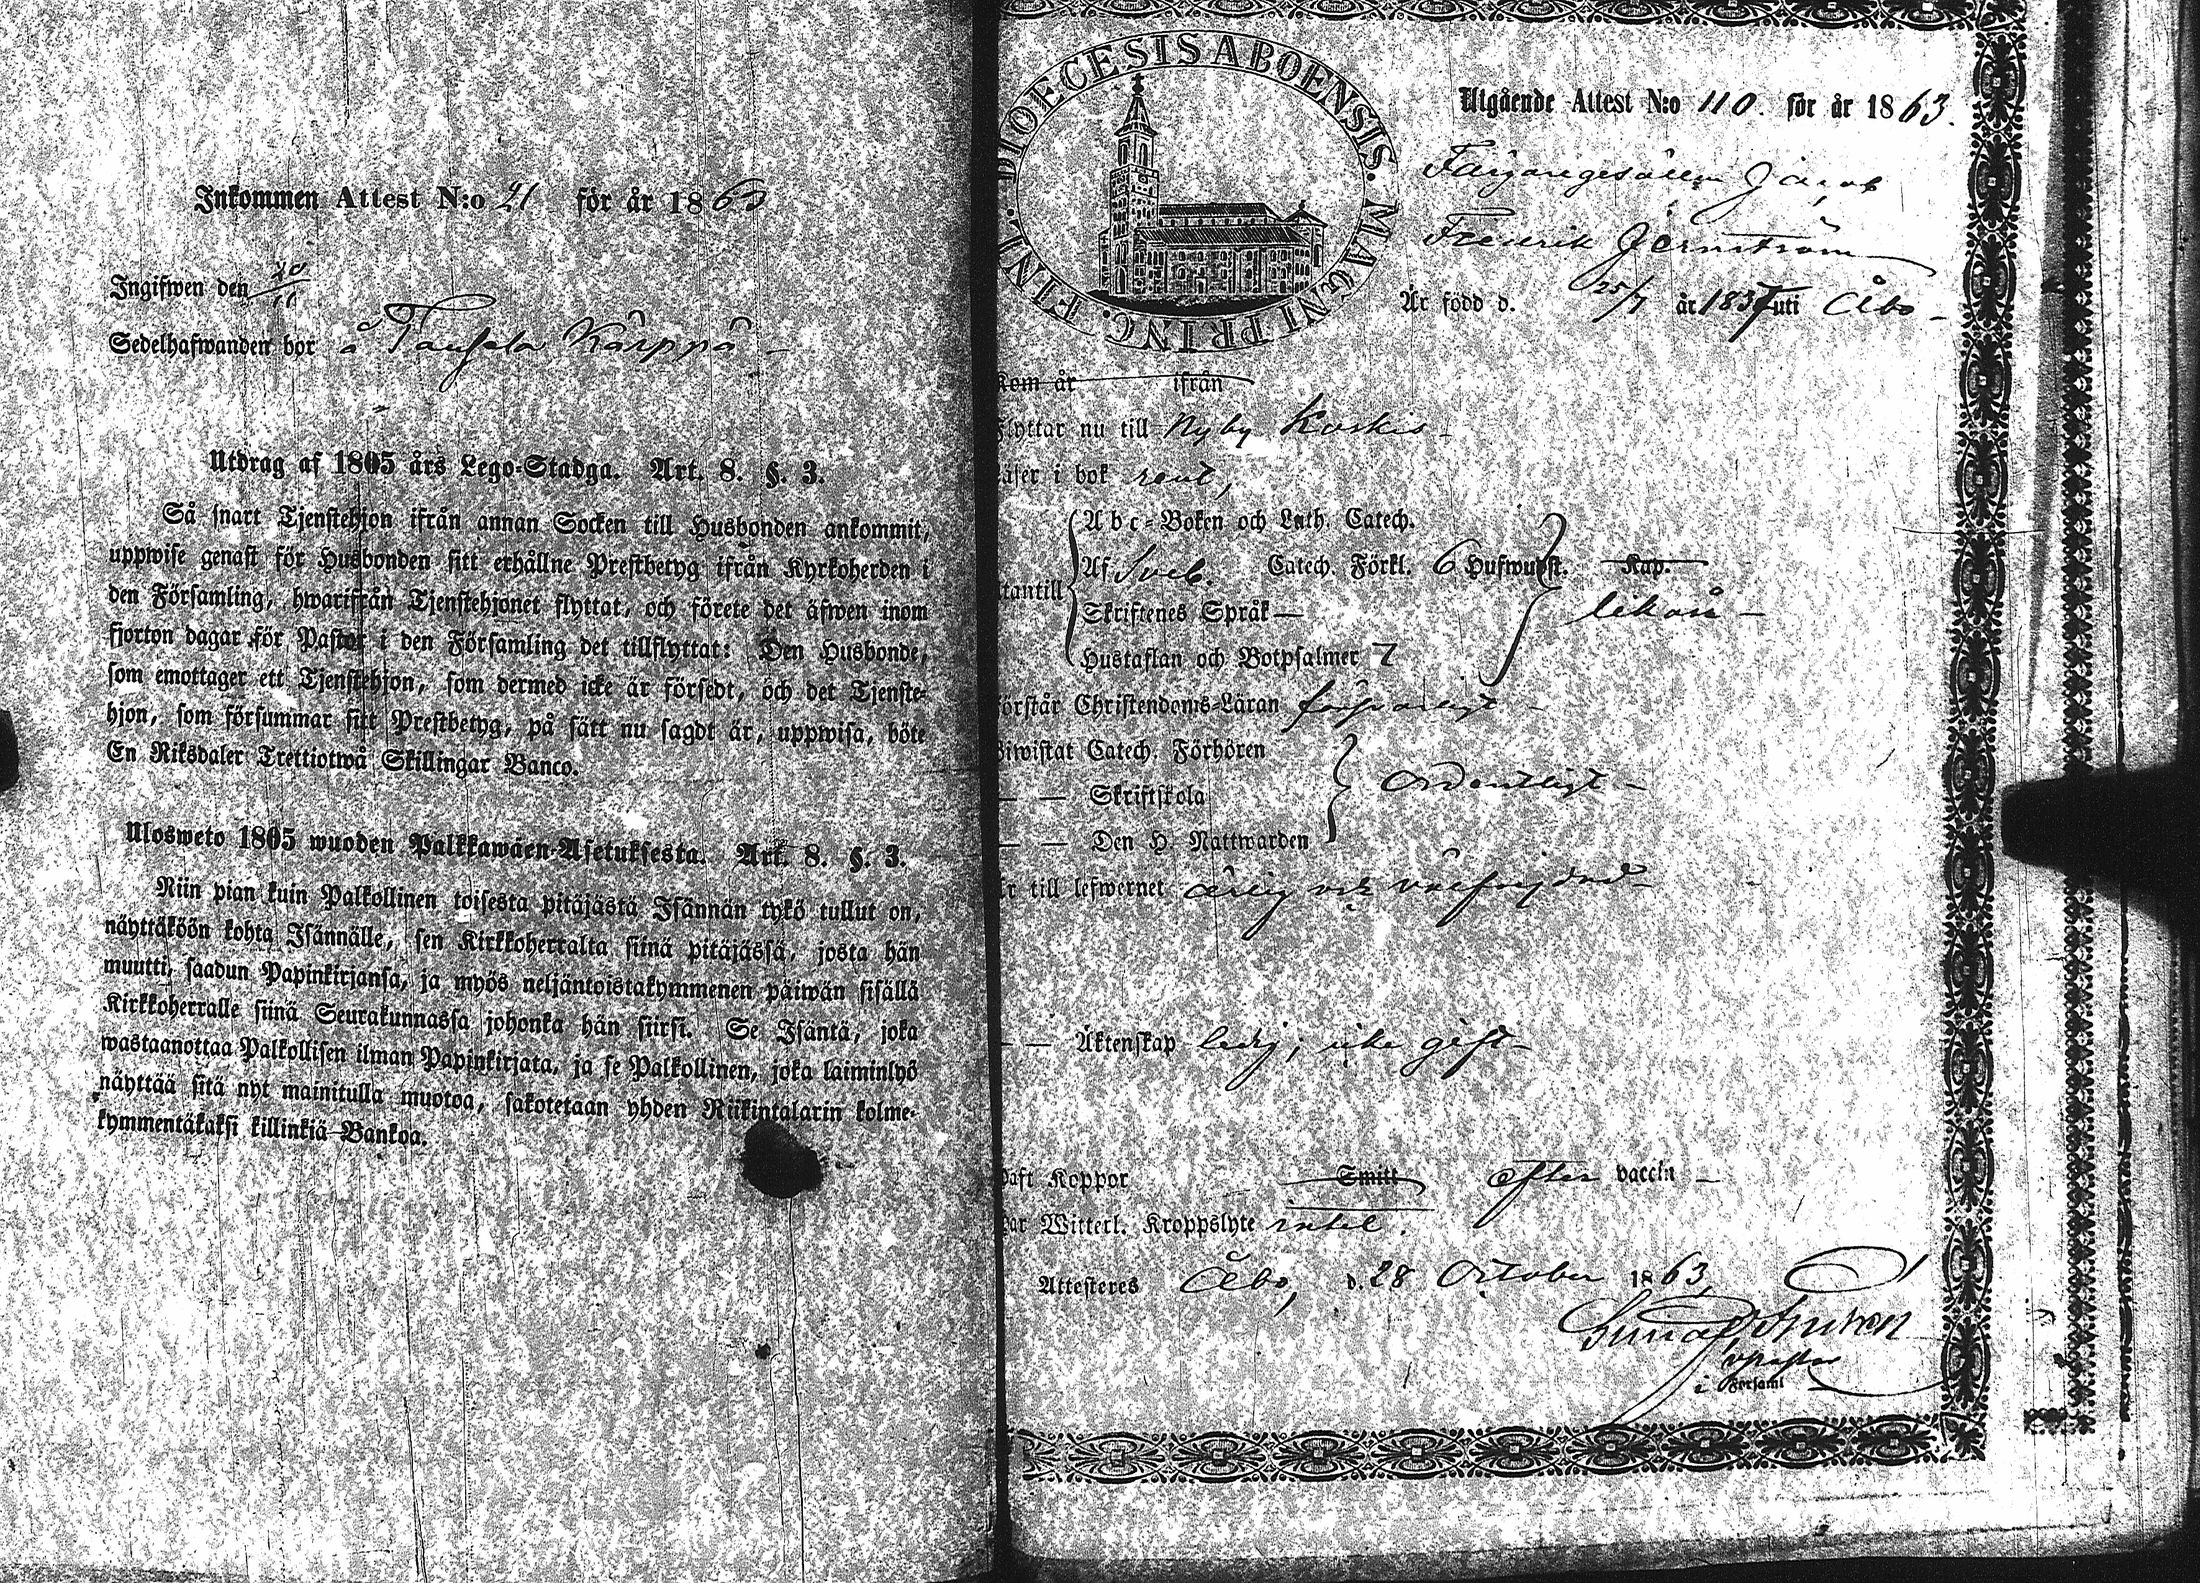 Inkommen Attest N:o 21 för år 1863
Ingifwen den 20/11
Sedelhafwanden bor å Kärppä
Utdrag af 1805 års Lego-Stadga. Art. 8. §. 3.
Så snart Tjenstehjon ifrån annan Socken till Husbonden ankommit,
uppwise genast för Husbonden sitt erhållne Prestbetyg ifrån Kyrkoherden i
den Församling, hwarifrån Tjenstehjonet flyttat, och förete det äfwen inom
fjorton dagar för Pastor i den Församling det tillflyttat: Den Husbonde,
som emottager ett Tjenstehjon, som dermed icke är försedt, och det Tjenste-
hjon, som försummar sitt Prestbetyg, på sätt nu sagdt är, uppwisa, böte
En Riksdaler Trettiotwå Skillingar Banco.
Ulosweto 1805 wuoden Palkkawäen-Asetuksesta. Art. 8. §. 3.
Niin pian kuin Palkollinen toisesta pitäjästä Isännän tykö tullut on,
näyttäköön kohta Isännälle, sen Kirkkoherralta siinä pitäjässä, josta hän
muutti, saadun Papinkirjansa, ja myös neljäntoistakymmenen päiwän sisällä
Kirkkoherralle siinä Seurakunnassa johonka hän siirsi. Se Isäntä, joka
wastaanottaa Palkollisen ilman Papinkirjata, ja se Palkollinen, joka laiminlyö
näyttää sitä nyt mainitulla muotoa, sakotetaan yhden Riikintalarin kolme-
kymmentäkaksi killinkiä Bankoa.
DIOECESIS ABOENSIS. MAGNI PRINC. FINL.
Utgående Attest N:o 110. för år 1863.
Färgaregesällen Jacob
Fredrik Jernström
Är född d. 25/7 år 1837 uti Åbo
Kom år ifrån
Flyttar nu till Nyby Koskis
Läser i bok rent,
Abc-Boken och Luth. Catech.
Af Sveb. Catech. Förkl. 6 Hufwudst. Kap.
Utantill likaså
Skriftenes Språk
Hustaflan och Botpsalmer 7
Förstår Christendoms-Läran förswarligt
Biwistat Catech. Förhören
— — Skriftskola Ordentligt
— — Den H. Nattwarden
Är till lefwernet ärlig och välfrejdad
— — Äktenskap ledig; icke gift
Haft Koppor Smitt efter vaccin
Har Witterl. Kroppslyte intet.
Attesteres Åbo, d. 28 October 1863.
vpastor
i Församl